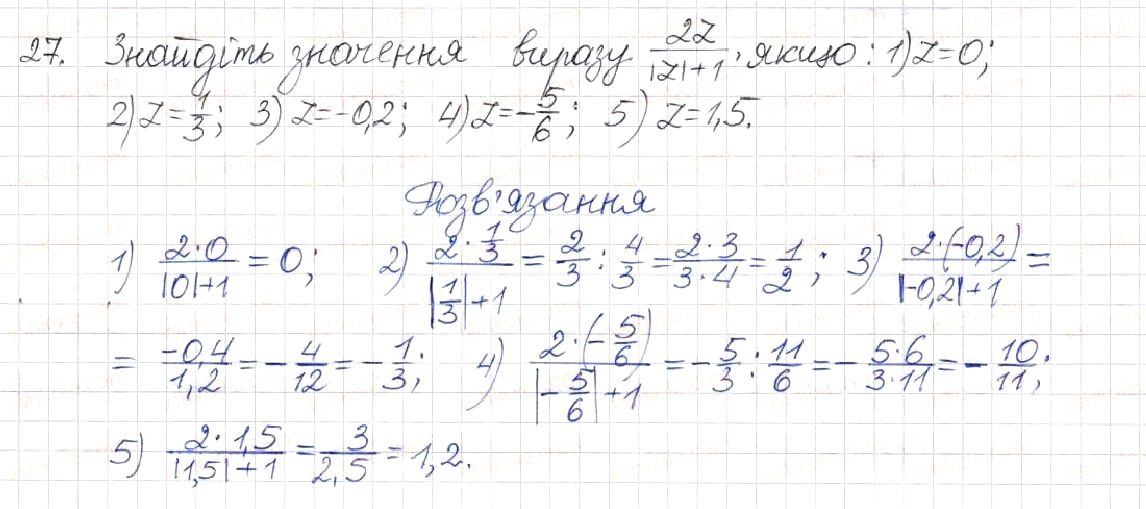 27. Знайдіть значення виразу 2z/(|z|+1), якщо: 1) z=0;
2) z=1/3; 3) z=-0,2; 4) z=-5/6; 5) z=1,5.
Розв'язання
1) (2·0)/(|0|+1) = 0; 2) (2·1/3)/(|1/3|+1) = 2/3 : 4/3 = (2·3)/(3·4) = 1/2; 3) (2·(-0,2))/(|-0,2|+1) =
= (-0,4)/(1,2) = -4/12 = -1/3; 4) (2·(-5/6))/(|-5/6|+1) = -5/3 : 11/6 = -(5·6)/(3·11) = -10/11;
5) (2·1,5)/(|1,5|+1) = 3/2,5 = 1,2.